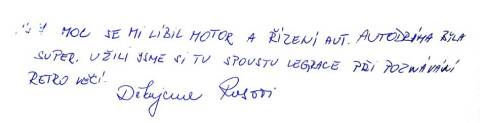 MOC SE MI LÍBIL MOTOR A ŘÍZENÍ AUT. AUTODRÁHA BYLA
SUPER. UŽILI JSME SI TU SPOUSTU LEGRACE PŘI POZNÁVÁNÍ
RETRO VĚCÍ.
Děkujeme